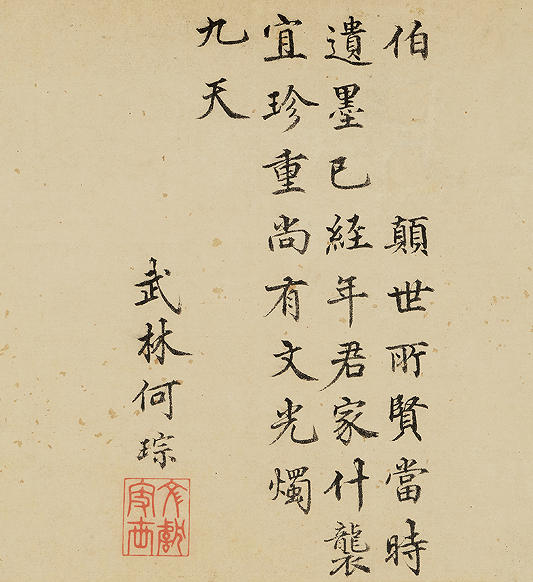 伯 顛世所賢當時
遺墨已経年君家什襲
宜珍重尚有文光燭
九天
武林何琮